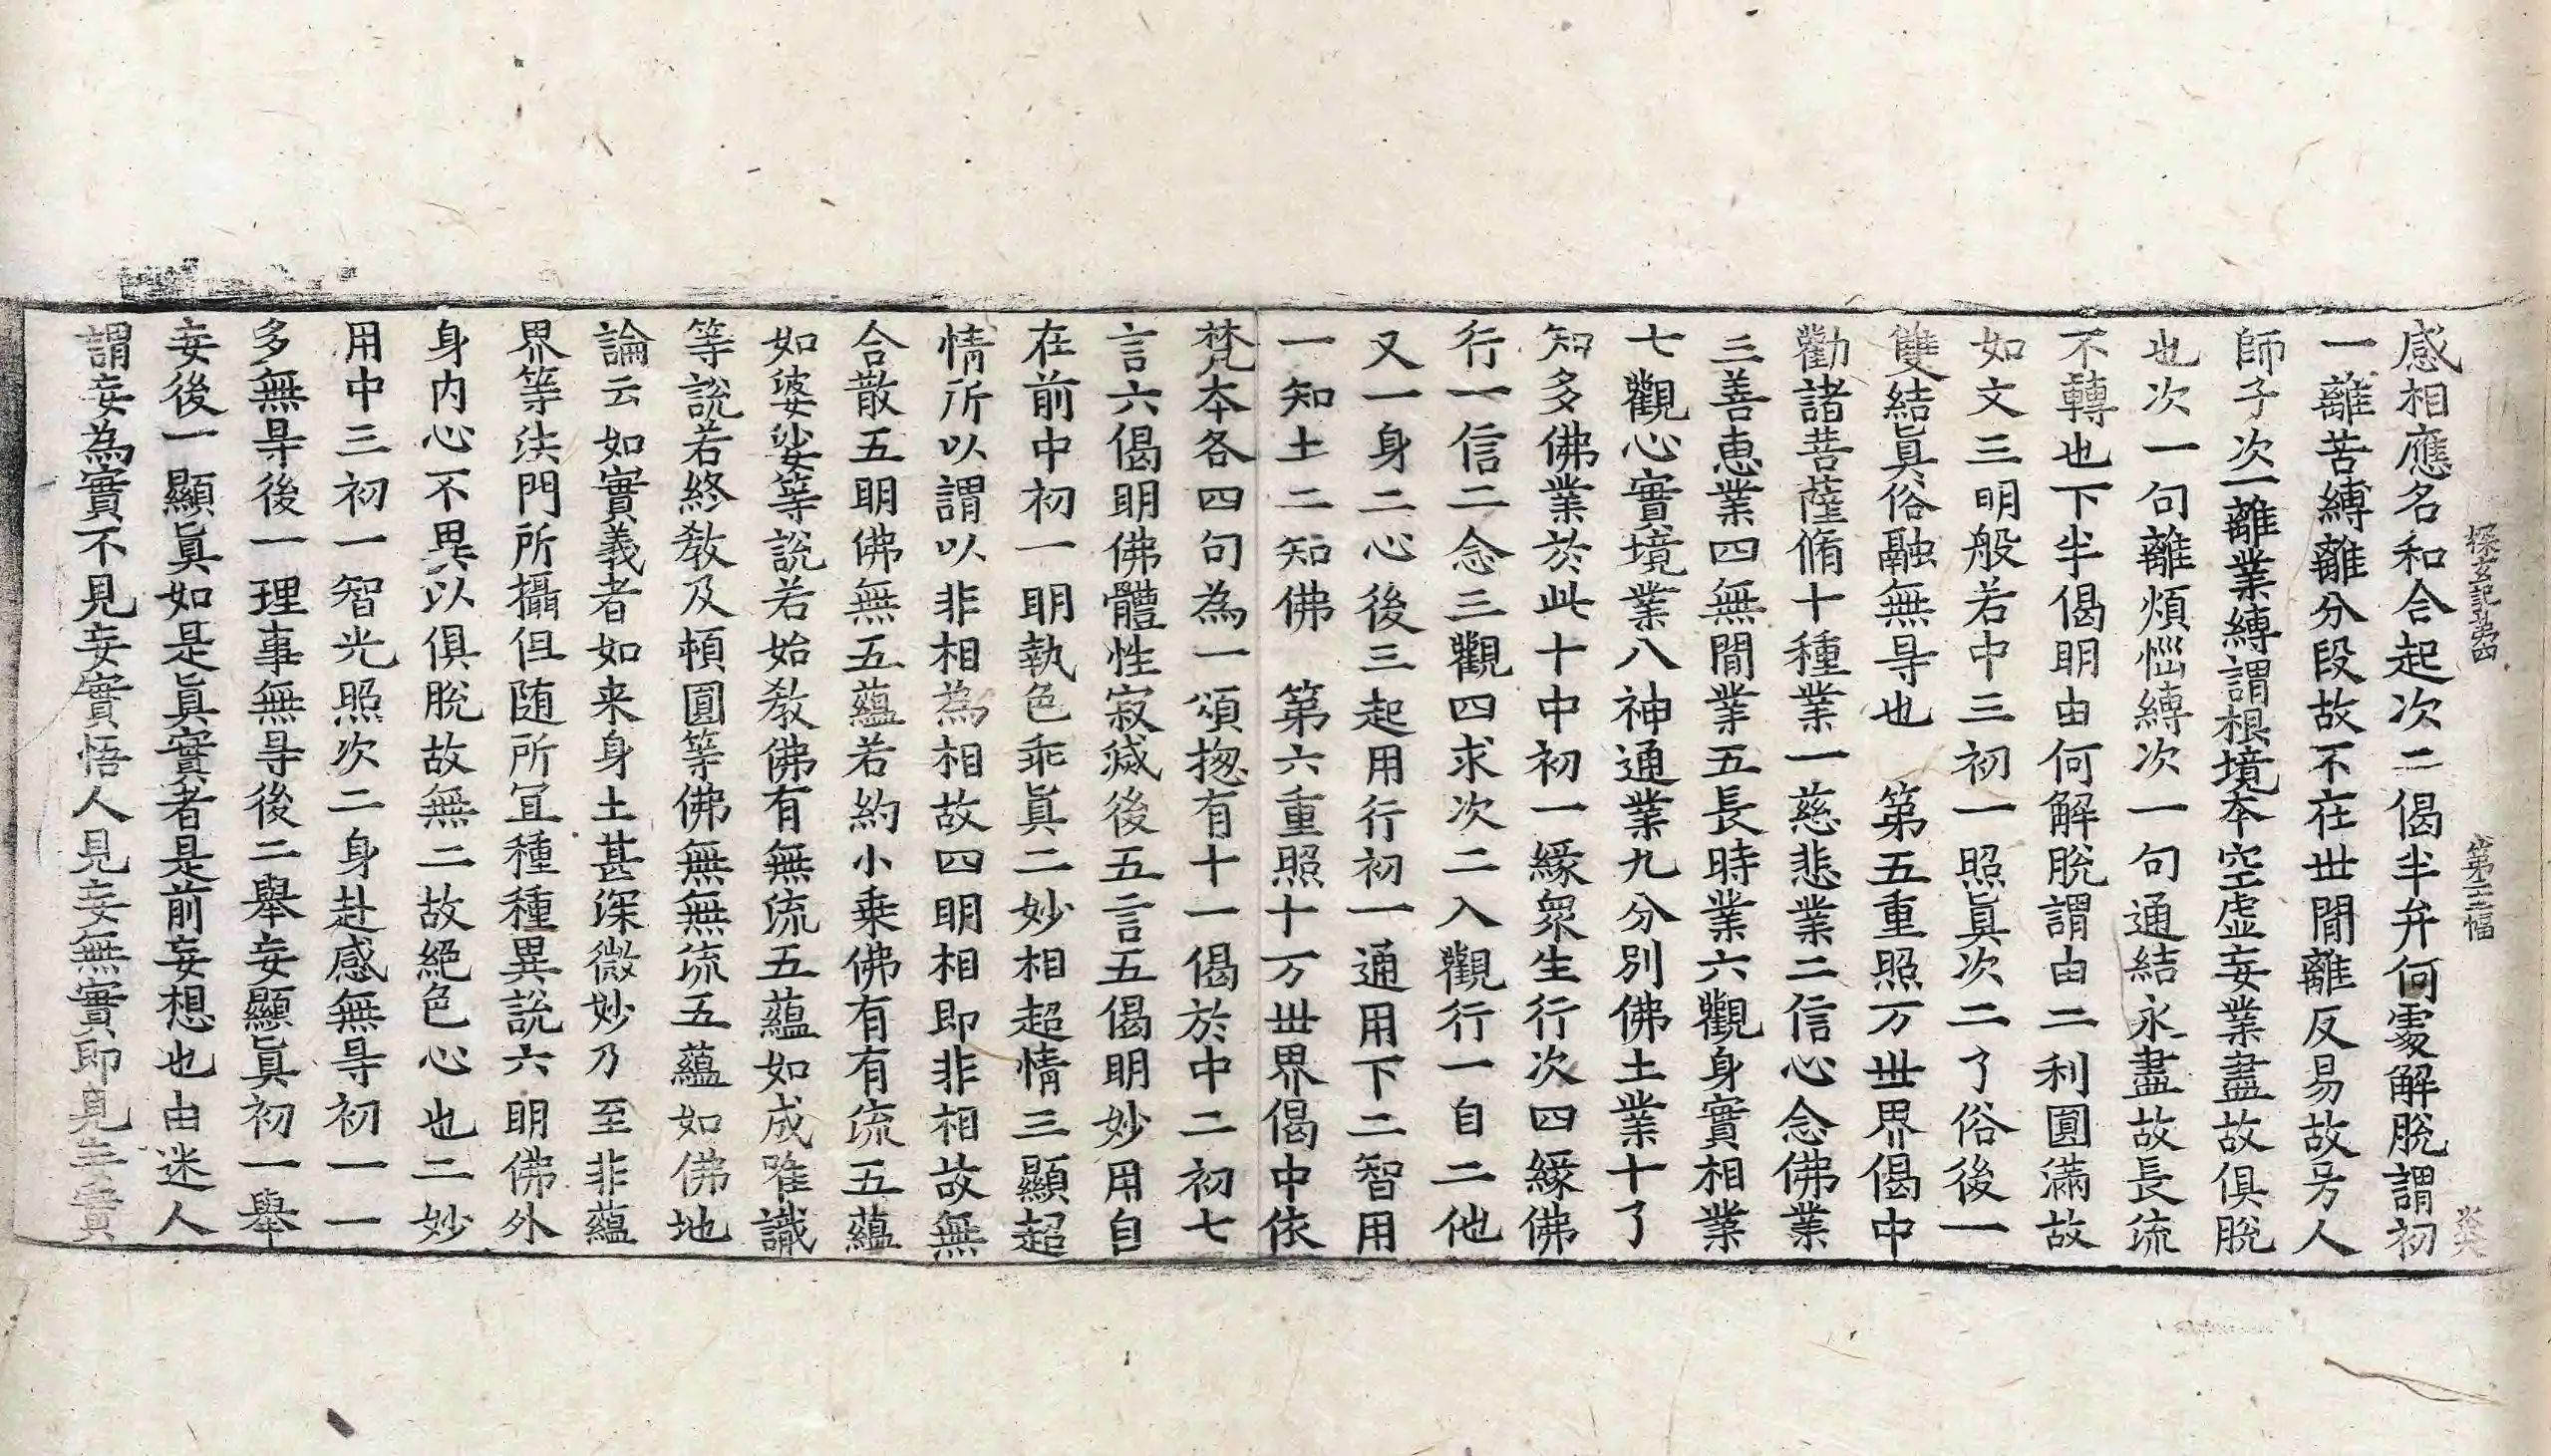 探玄記第四 第三幅 炎
感相應名和合起次二偈半弁何䖏解脫謂初
一離苦縛離分段故不在丗間離反易故号人
師子次一離業縛謂根境本空虛妄業盡故俱脫
也次一句離煩惱縛次一句通結永盡故長流
不轉也下半偈明由何解脫謂由二利圓滿故
如文三明般若中三初一照眞次二了俗後一
雙結眞俗融無㝵也 第五重照万丗界偈中
勸諸菩薩脩十種業一慈悲業二信心念佛業
三善恵業四無間業五長時業六觀身實相業
七觀心實境業八神通業九分別佛土業十了
知多佛業於此十中初一緣衆生行次四緣佛
行一信二念三觀四求次二入觀行一自二他
又一身二心後三起用行初一通用下二智用
一知土二知佛 第六重照十万丗界偈中依
梵本各四句為一頌揔有十一偈於中二初七
言六偈明佛體性寂滅後五言五偈明妙用自
在前中初一明執色乖眞二妙相超情三顯超
情所以謂以非相為相故四明相即非相故無
合散五明佛無五蘊若約小乗佛有有流五蘊
如婆娑等說若始教佛有無流五蘊如成唯識
等說若終教及頓圓等佛無無流五蘊如佛地
論云如實義者如来身土甚深微妙乃至非蘊
界等法門所攝但随所冝種種異說六明佛外
身内心不異以俱脫故無二故絕色心也二妙
用中三初一智光照次二身赴感無㝵初一一
多無㝵後一理事無㝵後二舉妄顯眞初一舉
妄後一顯眞如是眞實者是前妄想也由迷人
謂妄為實不見妄實悟人見妄無實即見妄實